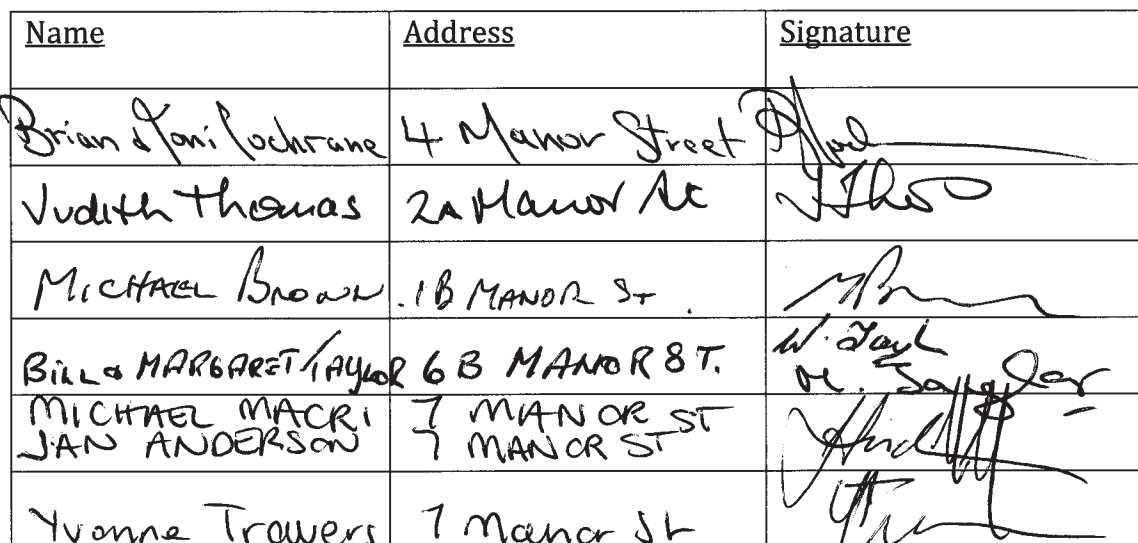 Name Address Signature
Brian & Toni Cochrane 4 Manor Street
Judith Thomas 2A Manor St
MICHAEL BROWN 1B MANOR ST
BILL & MARGARET TAYLOR 6B MANOR ST. W. Tayl
M. Taylor
MICHAEL MACRI 7 MANOR ST
JAN ANDERSON 7 MANOR ST
Yvonne Travers 7 Manor St